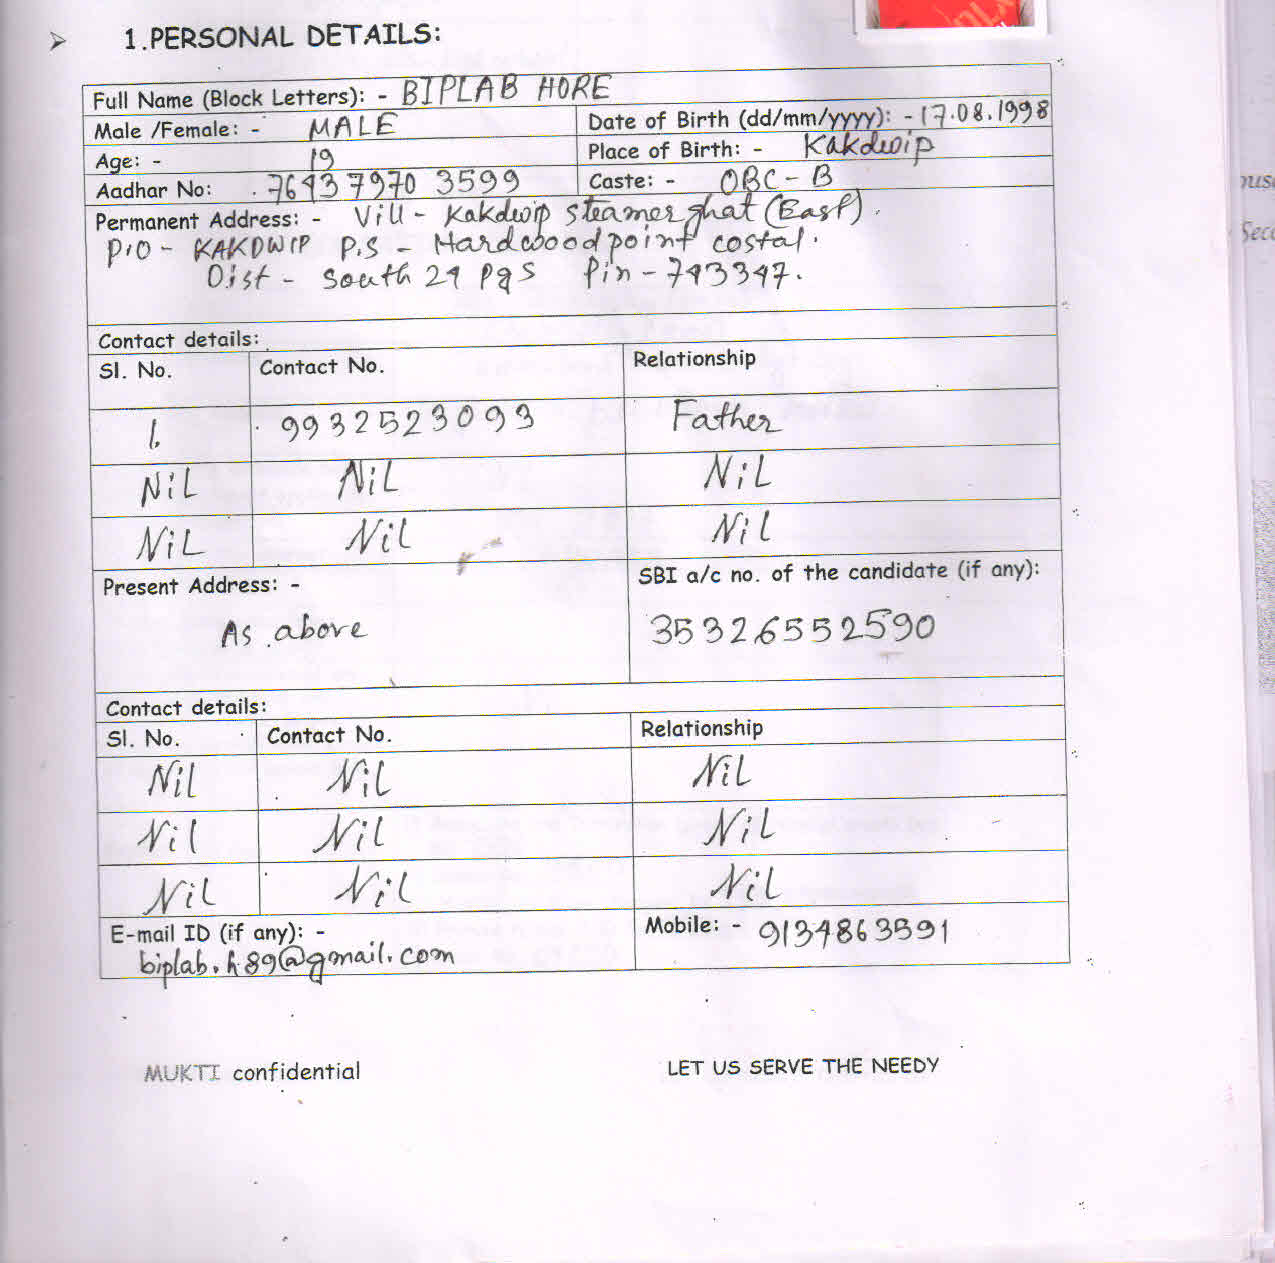 ➢ 1.PERSONAL DETAILS:
Full Name (Block Letters): - BIPLAB HORE
Male /Female: - MALE Date of Birth (dd/mm/yyyy): - 17.08.1998
Age: - 19 Place of Birth: - Kakdwip
Aadhar No: 7643 7970 3599 Caste: - OBC - B
Permanent Address: - Vill - Kakdwip steamer ghat (East).
P.O - KAKDWIP P.S - Hardwood point costal.
Dist - South 24 Pgs Pin - 743347.
Contact details:
Sl. No. Contact No. Relationship
1. 9932523093 Father
Nil Nil Nil
Nil Nil Nil
Present Address: - SBI a/c no. of the candidate (if any):
As above 35326552590
Contact details:
Sl. No. Contact No. Relationship
Nil Nil Nil
Nil Nil Nil
Nil Nil Nil
E-mail ID (if any): - Mobile: - 9134863591
biplab.h89@gmail.com
MUKTI confidential LET US SERVE THE NEEDY